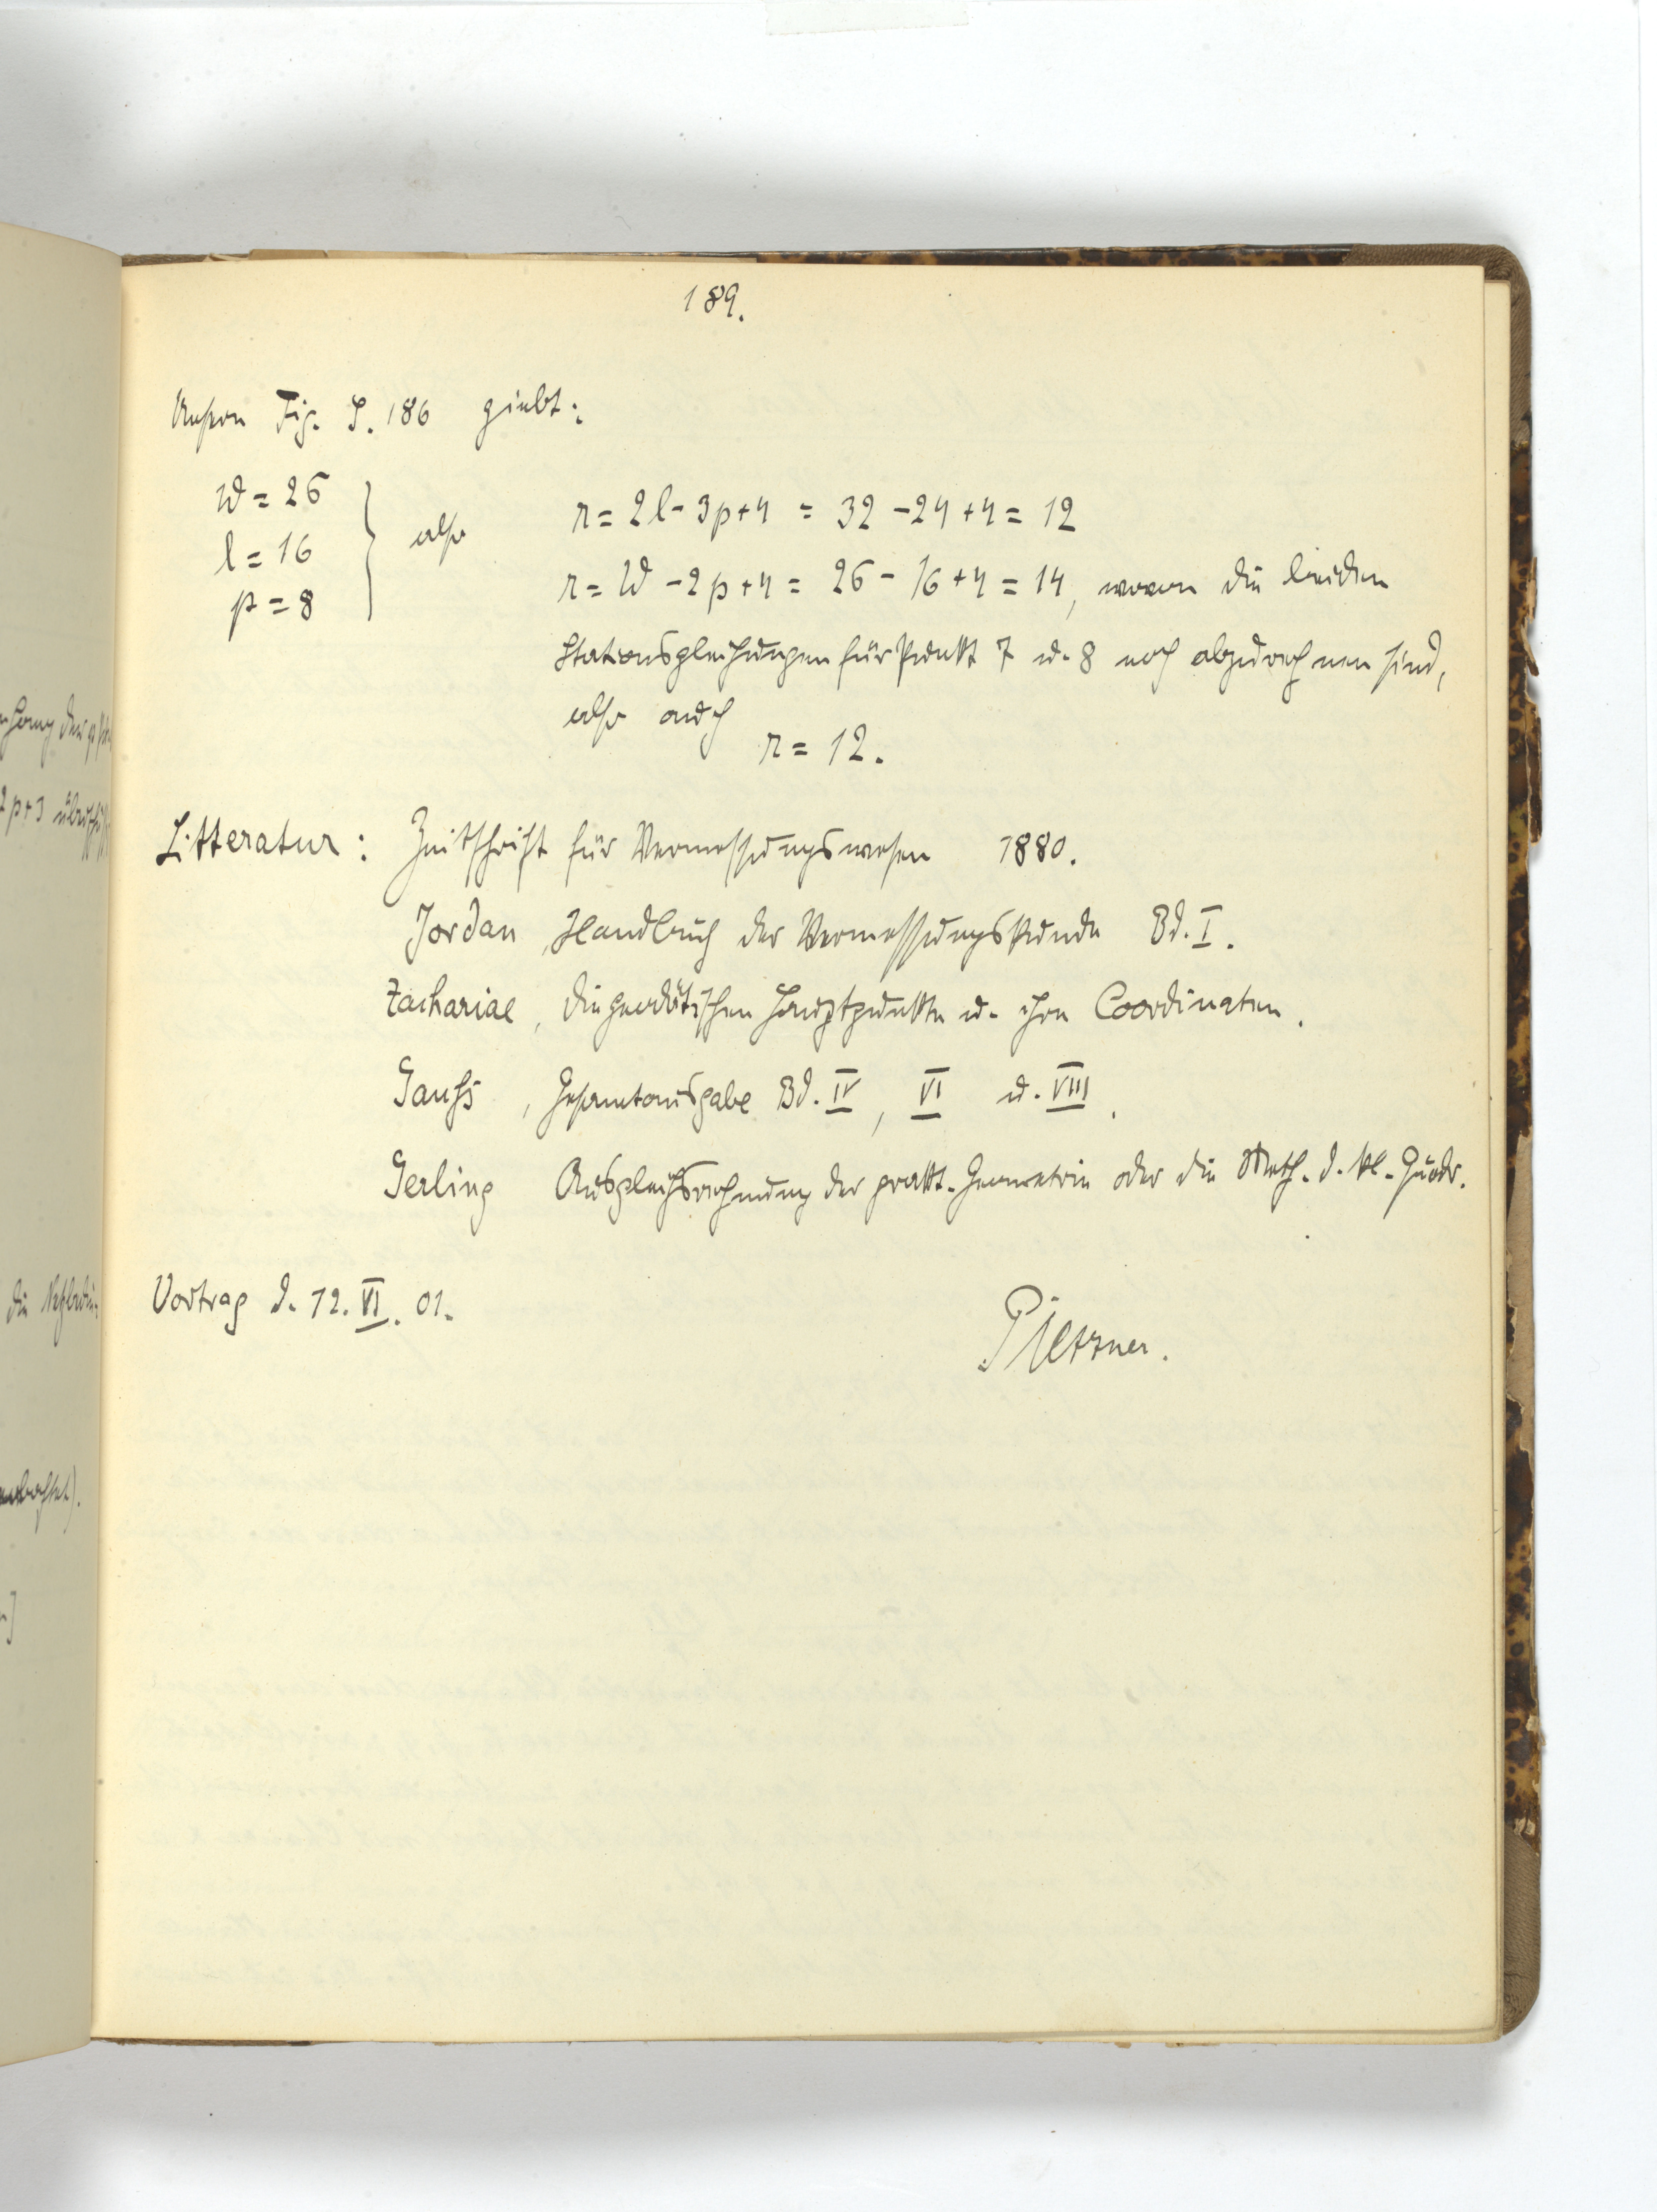 189.
Unsere Fig. S. 186 giebt:
W = 26
l = 16
p = 8
also
r = 2l - 3p + 4 = 32 - 24 + 4 = 12
r = W - 2p + 4 = 26 - 16 + 4 = 14, wovon die beiden
Stationsgleichungen für Punkt 7 u. 8 noch abzurechnen sind,
also auch
r = 12.
Litteratur: Zeitschrift für Vermessungswesen 1880.
Jordan, Handbuch der Vermessungskunde Bd. I.
Zachariae, die geodätischen Hauptpunkte u. ihre Coordinaten.
Gauß, Gesamtausgabe Bd. IV, VI u. VIII.
Gerling Ausgleichsrechnung der prakt. Geometrie oder die Meth. d. kl. Quadr.
Vortrag d. 12. VI. 01.
Piltzner.
2p+3